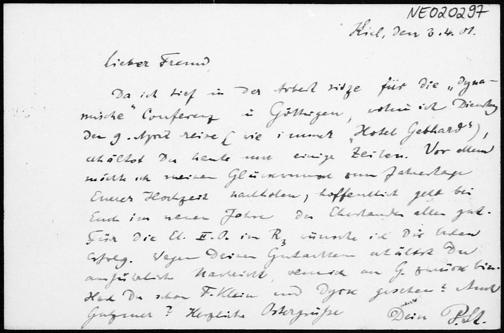 NE020297
Kiel, den 3.4.01.
Lieber Freund
Da ich tief in der Arbeit sitze für die „Dyna-
mische“ Conferenz in Göttingen, wohin ich Dienstag
den 9. April reise (wie immer „Hotel Gebhard“),
erhältst Du heute nur einige Zeilen. Vor allem
möchte ich meinen Glückwunsch zum Jahrestage
Eurer Hochzeit nachholen, hoffentlich geht bei
Euch im neuen Jahre des Ehestandes alles gut.
Für die El. in R₃ wünsche ich Dir besten
Erfolg. Wegen Deines Gutachtens erhältst Du
ausführliche Nachricht, wenn ich an G. zurück bin.
Hast Du schon F. Klein und Dyck gesehen? Auch
Gutzmer? Herzliche Ostergrüße
Dein P. St.